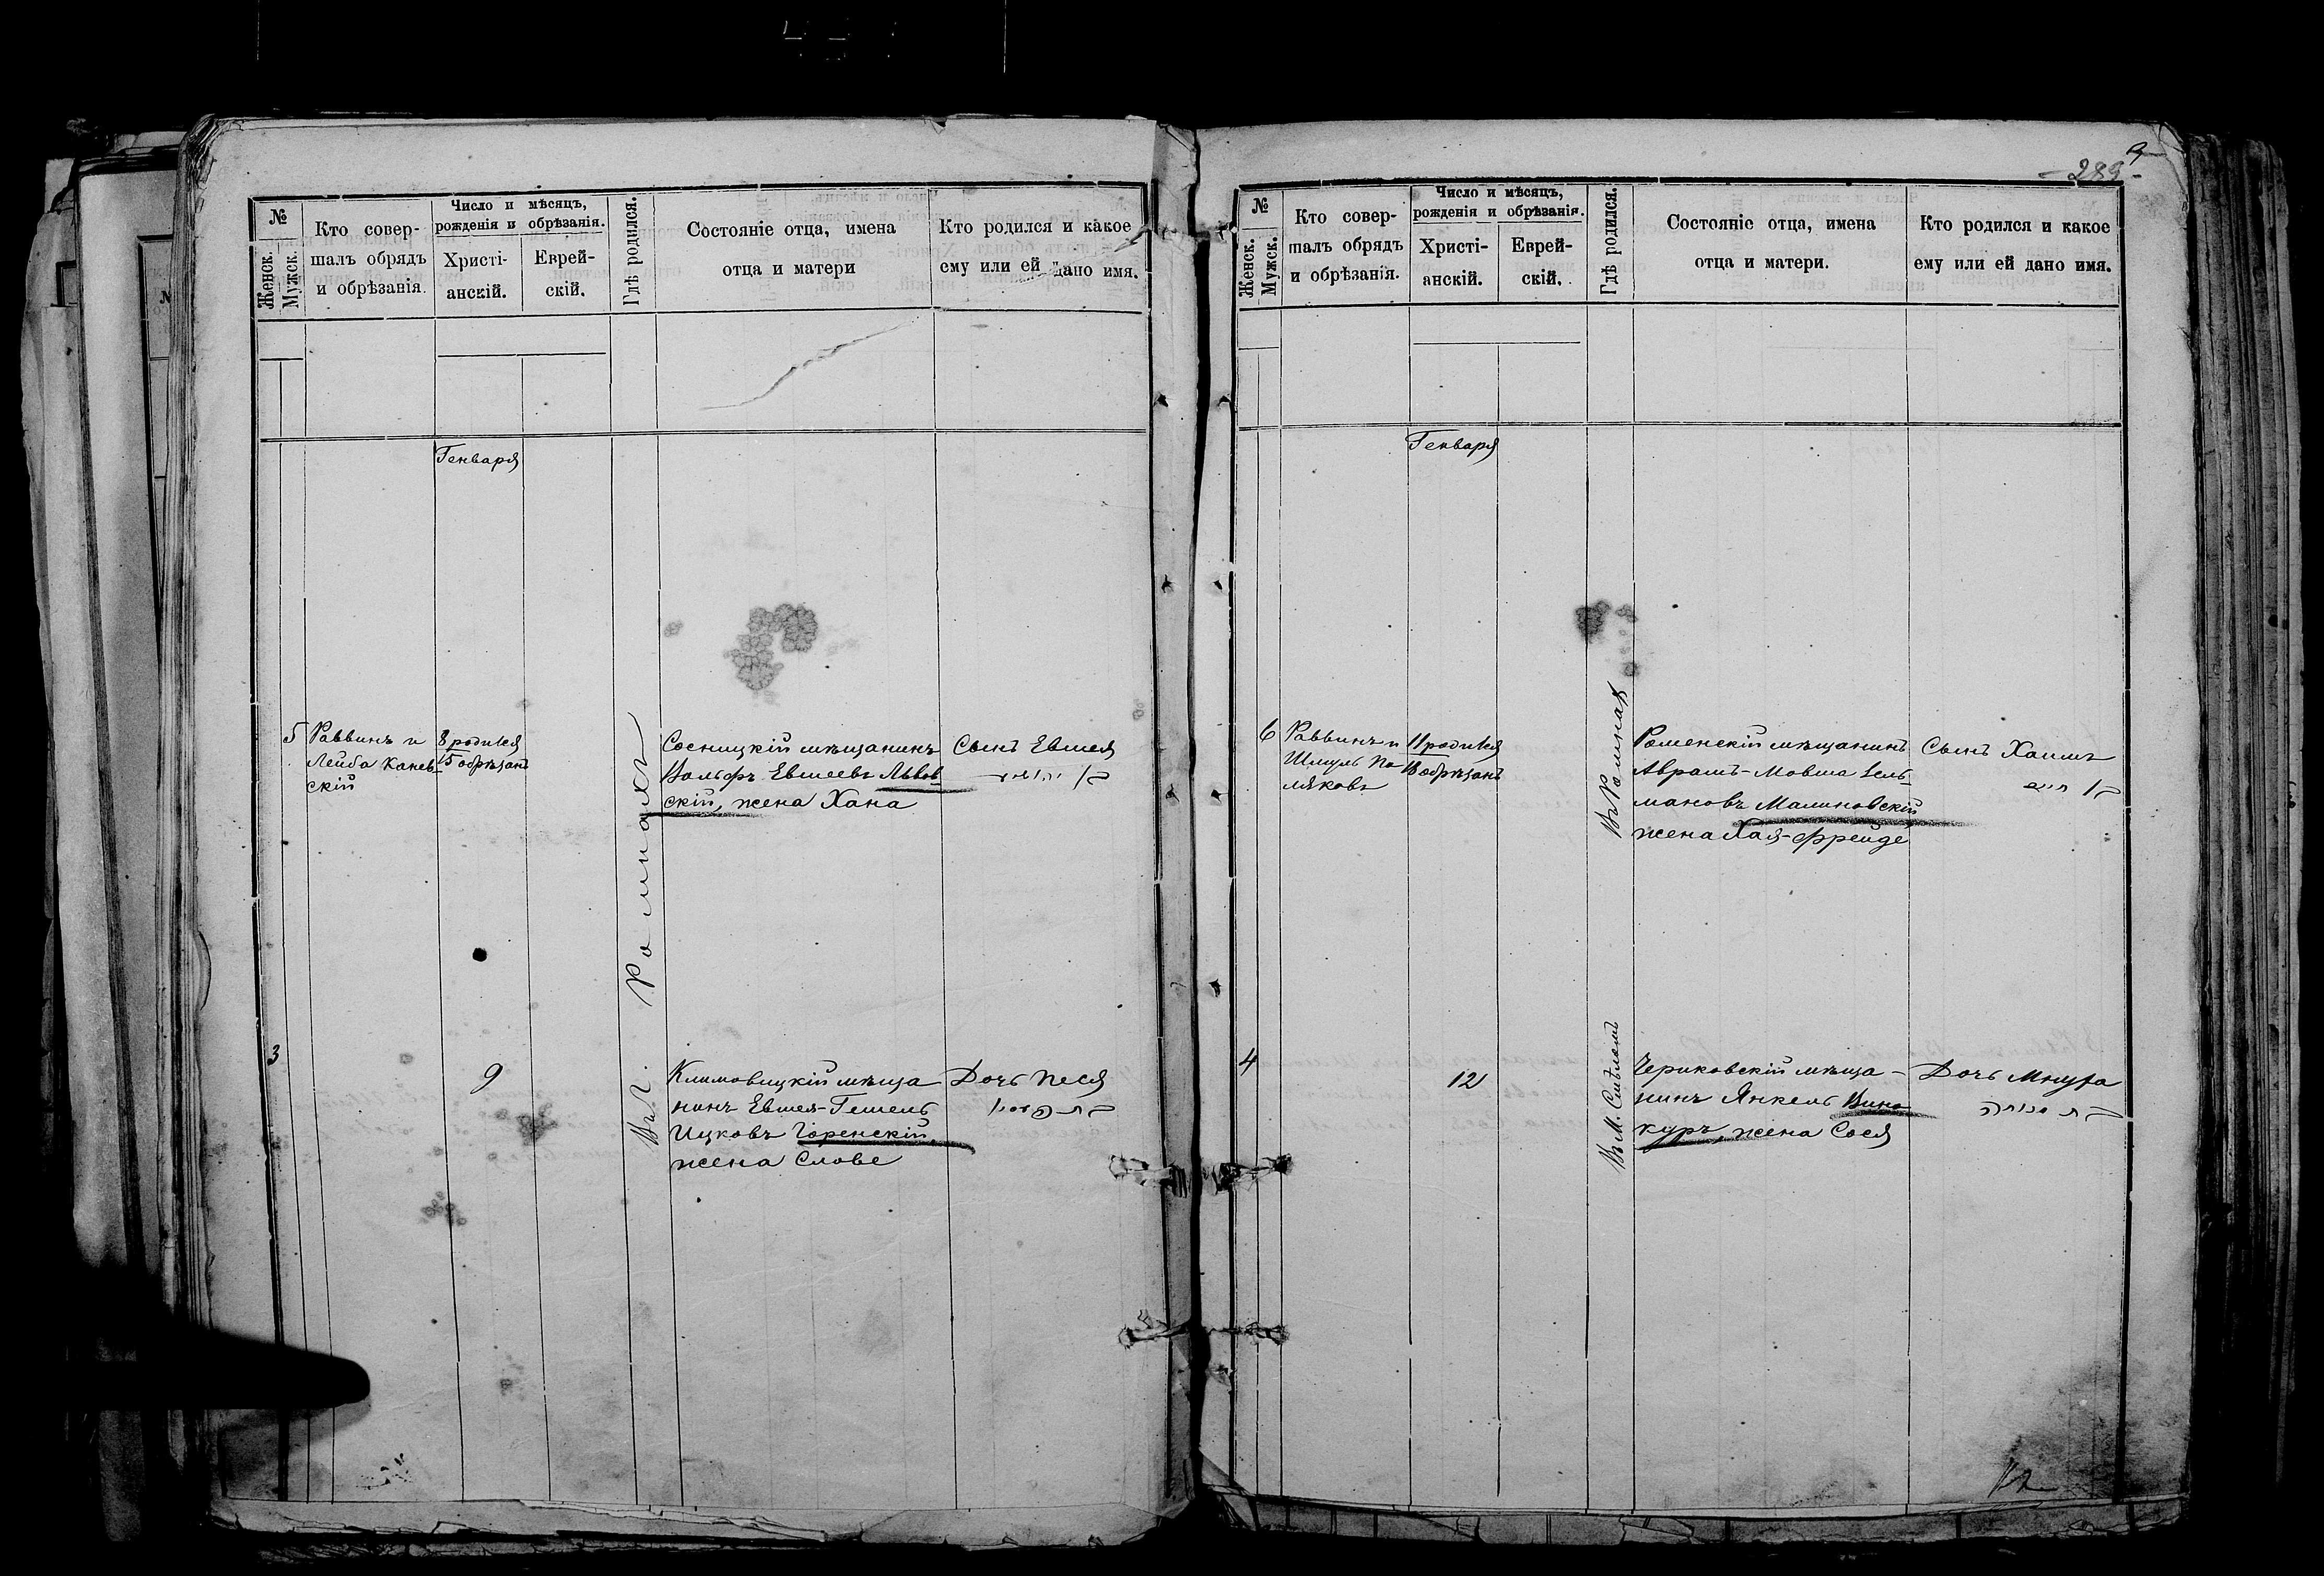 №
Женск.
Мужск.
Кто совер-
шалъ обрядъ
и обрѣзанія.
Число и мѣсяцъ,
рожденія и обрѣзанія.
Христі-
анскій.
Еврей-
скій.
Гдѣ родился.
Состояніе отца, имена
отца и матери
Кто родился и какое
ему или ей дано имя.
Генваря
5
Раввинъ и
Лейба Канев-
скій
8 родился
15 обрѣзанъ
Въ г. Ромнахъ
Сосницкій мѣщанинъ
Вольфъ Евшеевъ Львов
скій, жена Хана
Сынъ Евшея
3
9
Климовицкій мѣща
нинъ Евшея-Гешель
Ицковъ Горенскій,
жена Слове
Дочь Песя
289
№
Женск.
Мужск.
Кто совер-
шалъ обрядъ
и обрѣзанія.
Число и мѣсяцъ,
рожденія и обрѣзанія.
Христі-
анскій.
Еврей-
скій.
Гдѣ родился.
Состояніе отца, имена
отца и матери.
Кто родился и какое
ему или ей дано имя.
Генваря
6
Раввинъ и
Шмуль По-
ляковъ
11 родился
18 обрѣзанъ
Въ Ромнах
Роменскій мѣщанинъ
Аврамъ-Мовша Зель-
мановъ Малиновскій
жена Хая-Фрейде
Сынъ Хаимъ
בן חיים
4
12
Въ М. Смѣломъ
Чериковскій мѣща-
нинъ Янкель Вино
куръ, жена Сося
Дочь Мнуха
בת מנוחה